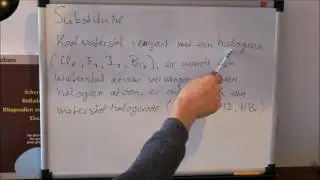 Substitutie
Koolwaterstof reageert met een halogeen
(Cl₂, F₂, I₂, Br₂), er wordt een
waterstof atoom vervangen een
halogeen atoom, er een
waterstof halogenide ( HI, HBr)